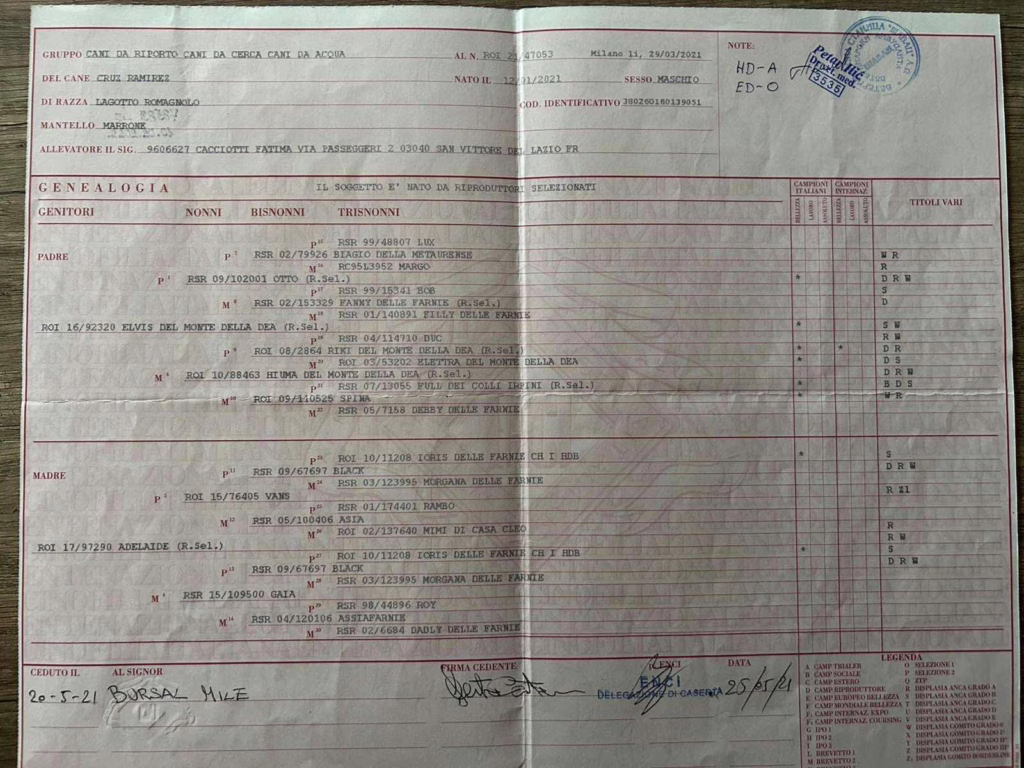 GRUPPO CANI DA RIPORTO CANI DA CERCA CANI DA ACQUA AL N. ROI 21/47053 Milano li, 29/03/2021
DEL CANE CRUZ RAMIREZ NATO IL 12/01/2021 SESSO MASCHIO
DI RAZZA LAGOTTO ROMAGNOLO COD. IDENTIFICATIVO 380260160139051
MANTELLO MARRONE
ALLEVATORE IL SIG. 9606627 CACCIOTTI FATIMA VIA PASSEGGERI 2 03040 SAN VITTORE DEL LAZIO FR
NOTE:
HD-A
ED-O
Petar Ilić
Dr vet. med.
3535
GENEALOGIA IL SOGGETTO E' NATO DA RIPRODUTTORI SELEZIONATI
CAMPIONI ITALIANI CAMPIONI INTERNAZ. TITOLI VARI
BELLEZZA LAVORO ASSOLUTO BELLEZZA LAVORO ASSOLUTO
GENITORI NONNI BISNONNI TRISNONNI
RSR 99/48807 LUX
PADRE P RSR 02/79926 BIAGIO DELLA METAURENSE W R
M RC95L3952 MARGO R
P RSR 09/102001 OTTO (R.Sel.) * D R W
P RSR 99/15341 BOB S
M RSR 02/153329 FANNY DELLE FARNIE (R.Sel.) D
M RSR 01/140891 FILLY DELLE FARNIE
ROI 16/92320 ELVIS DEL MONTE DELLA DEA (R.Sel.) * S W
P RSR 04/114710 DUC R W
P ROI 08/2864 RIKI DEL MONTE DELLA DEA (R.Sel.) * * D R
M ROI 03/53202 ELETTRA DEL MONTE DELLA DEA * D S
M ROI 10/88463 HIUMA DEL MONTE DELLA DEA (R.Sel.) D R W
P RSR 07/13055 FULL DEI COLLI IRPINI (R.Sel.) * B D S
M ROI 09/110525 SPINA W R
M RSR 05/7158 DEBBY DELLE FARNIE
P ROI 10/11208 IORIS DELLE FARNIE CH I HDB * S
MADRE P RSR 09/67697 BLACK D R W
M RSR 03/123995 MORGANA DELLE FARNIE
P ROI 15/76405 VANS R Z1
P RSR 01/174401 RAMBO
M RSR 05/100406 ASIA
M ROI 02/137640 MIMI DI CASA CLEO R
ROI 17/97290 ADELAIDE (R.Sel.) R W
P ROI 10/11208 IORIS DELLE FARNIE CH I HDB * S
P RSR 09/67697 BLACK D R W
M RSR 03/123995 MORGANA DELLE FARNIE
M RSR 15/109500 GAIA
P RSR 98/44896 ROY
M RSR 04/120106 ASSIAFARNIE
M RSR 02/6684 DADLY DELLE FARNIE
CEDUTO IL AL SIGNOR FIRMA CEDENTE ENCI DATA
20-5-21 BURSAC MILE 25/05/21
ENCI
DELEGAZIONE DI CASERTA
LEGENDA
A CAMP TRIALER O SELEZIONE 1
B CAMP SOCIALE P SELEZIONE 2
C CAMP ESTERO Q ZTP
D CAMP RIPRODUTTORE R DISPLASIA ANCA GRADO A
E CAMP EUROPEO BELLEZZA S DISPLASIA ANCA GRADO B
F CAMP MONDIALE BELLEZZA T DISPLASIA ANCA GRADO C
CAMP INTERNAZ. EXPO U DISPLASIA ANCA GRADO D
CAMP INTERNAZ. COURSING V DISPLASIA ANCA GRADO E
G IPO 1 W DISPLASIA GOMITO GRADO 0
H IPO 2 X DISPLASIA GOMITO GRADO I°
I IPO 3 Y DISPLASIA GOMITO GRADO II°
L BREVETTO 1 Z DISPLASIA GOMITO GRADO III°
M BREVETTO 2 DISPLASIA GOMITO BORDERLINE